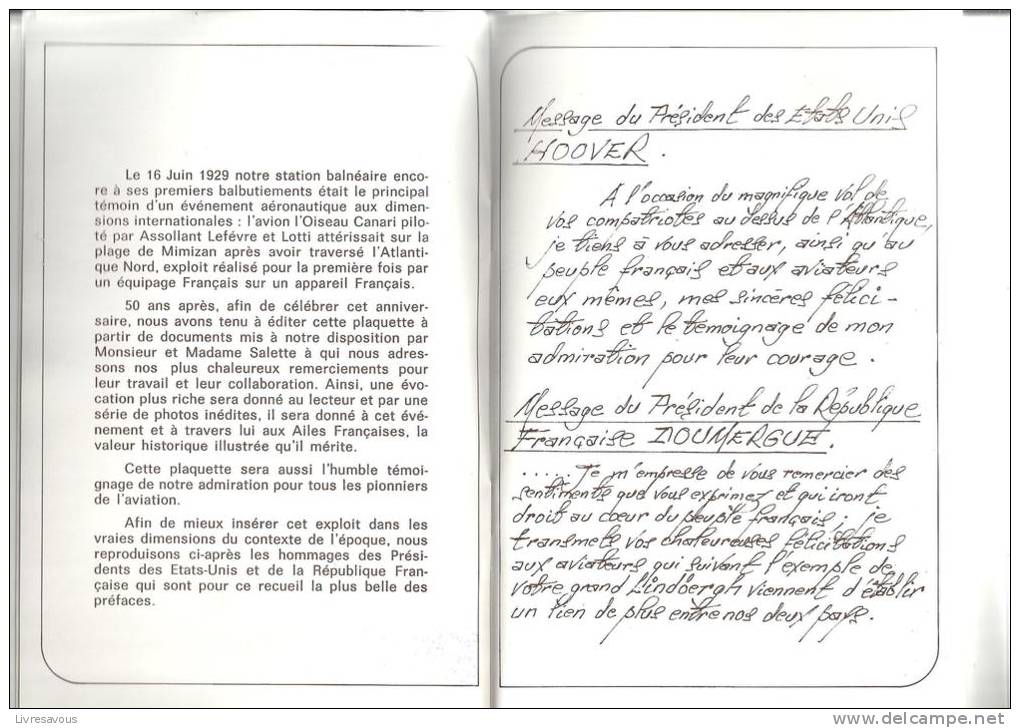 Le 16 Juin 1929 notre station balnéaire enco-
re à ses premiers balbutiements était le principal
témoin d'un événement aéronautique aux dimen-
sions internationales : l'avion l'Oiseau Canari pilo-
té par Assollant Lefévre et Lotti attérissait sur la
plage de Mimizan après avoir traversé l'Atlanti-
que Nord, exploit réalisé pour la première fois par
un équipage Français sur un appareil Français.
50 ans après, afin de célébrer cet anniver-
saire, nous avons tenu à éditer cette plaquette à
partir de documents mis à notre disposition par
Monsieur et Madame Salette à qui nous adres-
sons nos plus chaleureux remerciements pour
leur travail et leur collaboration. Ainsi, une évo-
cation plus riche sera donné au lecteur et par une
série de photos inédites, il sera donné à cet évé-
nement et à travers lui aux Ailes Françaises, la
valeur historique illustrée qu'il mérite.
Cette plaquette sera aussi l'humble témoi-
gnage de notre admiration pour tous les pionniers
de l'aviation.
Afin de mieux insérer cet exploit dans les
vraies dimensions du contexte de l'époque, nous
reproduisons ci-après les hommages des Prési-
dents des Etats-Unis et de la République Fran-
çaise qui sont pour ce recueil la plus belle des
préfaces.
Message du Président des Etats Unis
HOOVER.
A l'occasion du magnifique vol de
vos compatriotes au dessus de l'Atlantique,
je tiens à vous adresser, ainsi qu'au
peuple français et aux aviateurs
eux mêmes, mes sincères félici-
tations et le temoignage de mon
admiration pour leur courage.
Message du Président de la République
Française DOUMERGUE.
...... Je m'empresse de vous remercier des
sentiments que vous exprimez et qui iront
droit au cœur du peuple français ; je
transmets vos chaleureuses félicitations
aux aviateurs qui suivant l'exemple de
votre grand Lindbergh viennent d'établir
un lien de plus entre nos deux pays.
Livresavous
delcampe.net